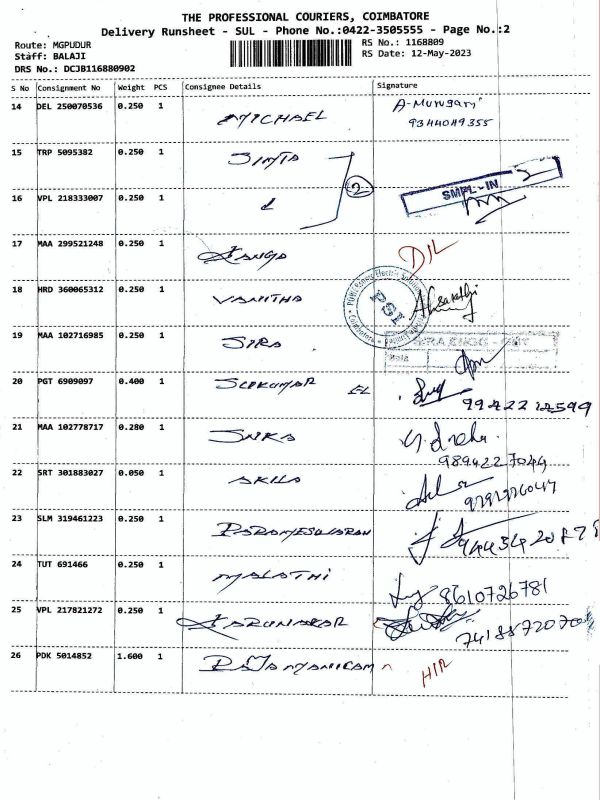 THE PROFESSIONAL COURIERS, COIMBATORE
Delivery Runsheet - SUL - Phone No.:0422-3505555 - Page No.:2
Route: MGPUDUR
Staff: BALAJI
DRS No.: DCJB116880902
RS No.: 1168809
RS Date: 12-May-2023
S No Consignment No Weight PCS Consignee Details Signature
14 DEL 250070536 0.250 1 MICHAEL A-Murugan
9344049355
15 TRP 5095382 0.250 1
2
16 VPL 218333007 0.250 1 SMPL-IN
17 MAA 299521248 0.250 1 Ganga D/L
18 HRD 360065312 0.250 1 VANITHA PGI
19 MAA 102716985 0.250 1 SIRA
20 PGT 6909097 0.400 1 SUKUMAR EL
21 MAA 102778717 0.280 1
9894227044
22 SRT 301883027 0.050 1 AKILA
23 SLM 319461223 0.250 1 PARAMESWARAN
24 TUT 691466 0.250 1 MALATHI 8610726781
25 VPL 217821272 0.250 1 KARUNAKAR
26 PDK 5014852 1.600 1 RAJAMANICAM